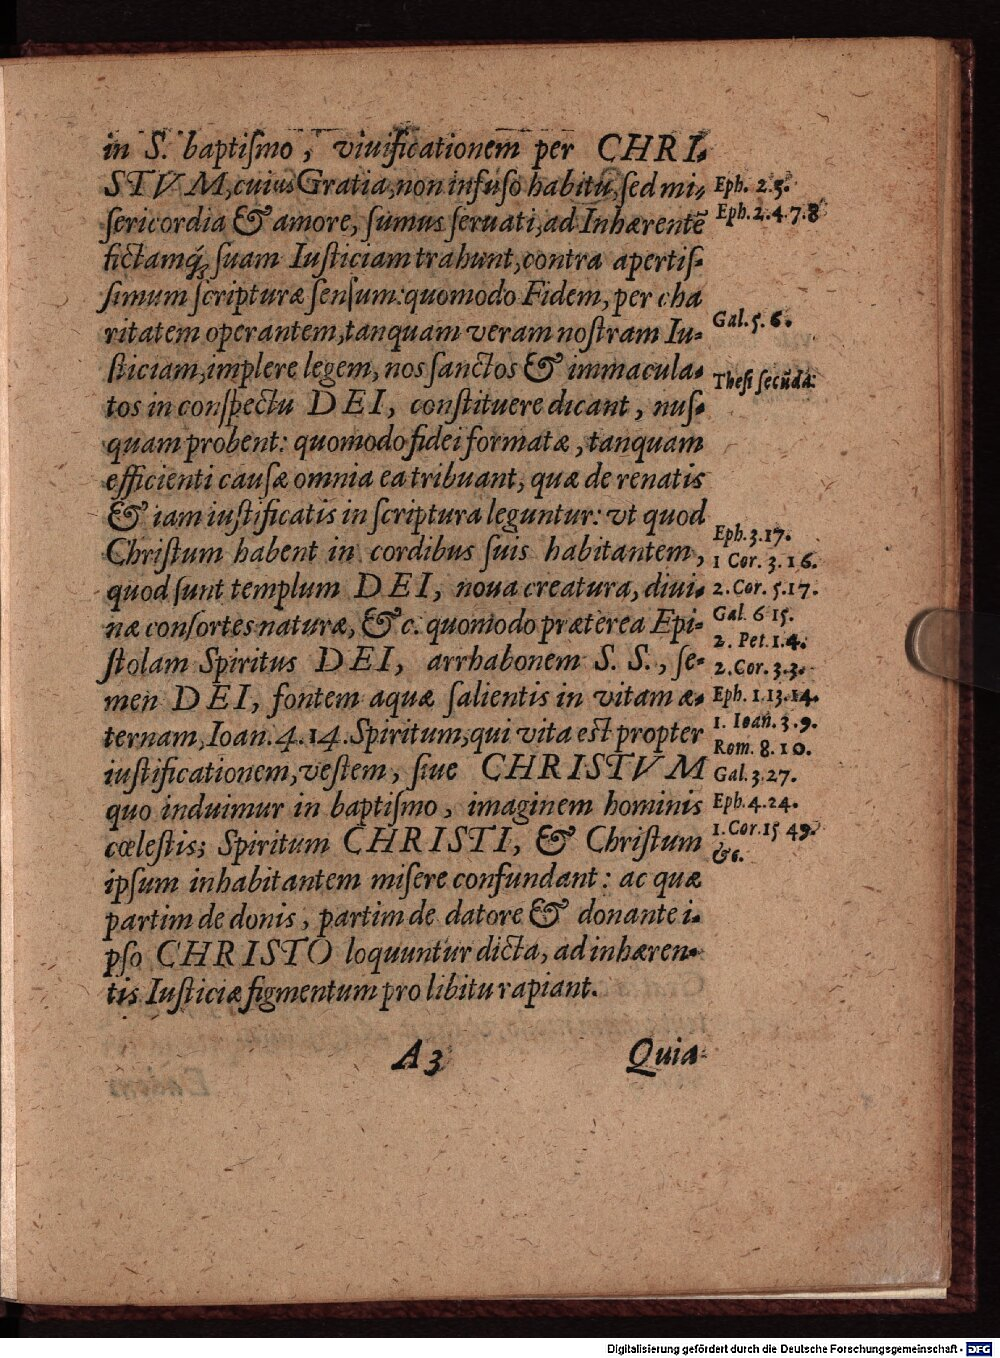 in S. baptiſmo, viuificationem per CHRI-
STVM, cuius Gratia, non infuſo habitu, ſed mi-
ſericordia & amore, ſumus ſeruati, ad Inhærentē
fictamq́; ſuam Iuſticiam trahunt, contra apertiſ-
ſimum ſcripturæ ſenſum: quomodo Fidem, per cha
ritatem operantem, tanquam veram noſtram Iu-
ſticiam, implere legem, nos ſanctos & immacula-
tos in conſpectu DEI, conſtituere dicant, nuſ-
quam probent: quomodo fidei formatæ, tanquam
efficienti cauſæ omnia ea tribuant, quæ de renatis
& iam iuſtificatis in ſcriptura leguntur: vt quod
Chriſtum habent in cordibus ſuis habitantem,
quod ſunt templum DEI, noua creatura, diui-
næ conſortes naturæ, & c. quomodo præterea Epi-
ſtolam Spiritus DEI, arrhabonem S. S., ſe-
men DEI, fontem aquæ ſalientis in vitam æ-
ternam, Ioan. 4.14. Spiritum, qui vita eſt propter
iuſtificationem, veſtem, ſiue CHRISTVM
quo induimur in baptiſmo, imaginem hominis
cœleſtis; Spiritum CHRISTI, & Chriſtum
ipſum inhabitantem miſere confundant: ac quæ
partim de donis, partim de datore & donante i-
pſo CHRISTO loquuntur dicta, ad inhæren-
tis Iuſticiæ figmentum pro libitu rapiant.
A3 Quia
Eph. 2.5.
Eph. 2.4.7.8
Gal. 5.6.
Theſi ſecūda:
Eph. 3.17.
1 Cor. 3.16.
2. Cor. 5.17.
Gal. 6 15.
2. Pet. 1.4.
2. Cor. 3.3.
Eph. 1.13.14.
1. Ioan. 3.9.
Rom. 8.10.
Gal. 3.27.
Eph. 4.24.
1. Cor. 15 49.
&c.
Digitalisierung gefördert durch die Deutsche Forschungsgemeinschaft - DFG